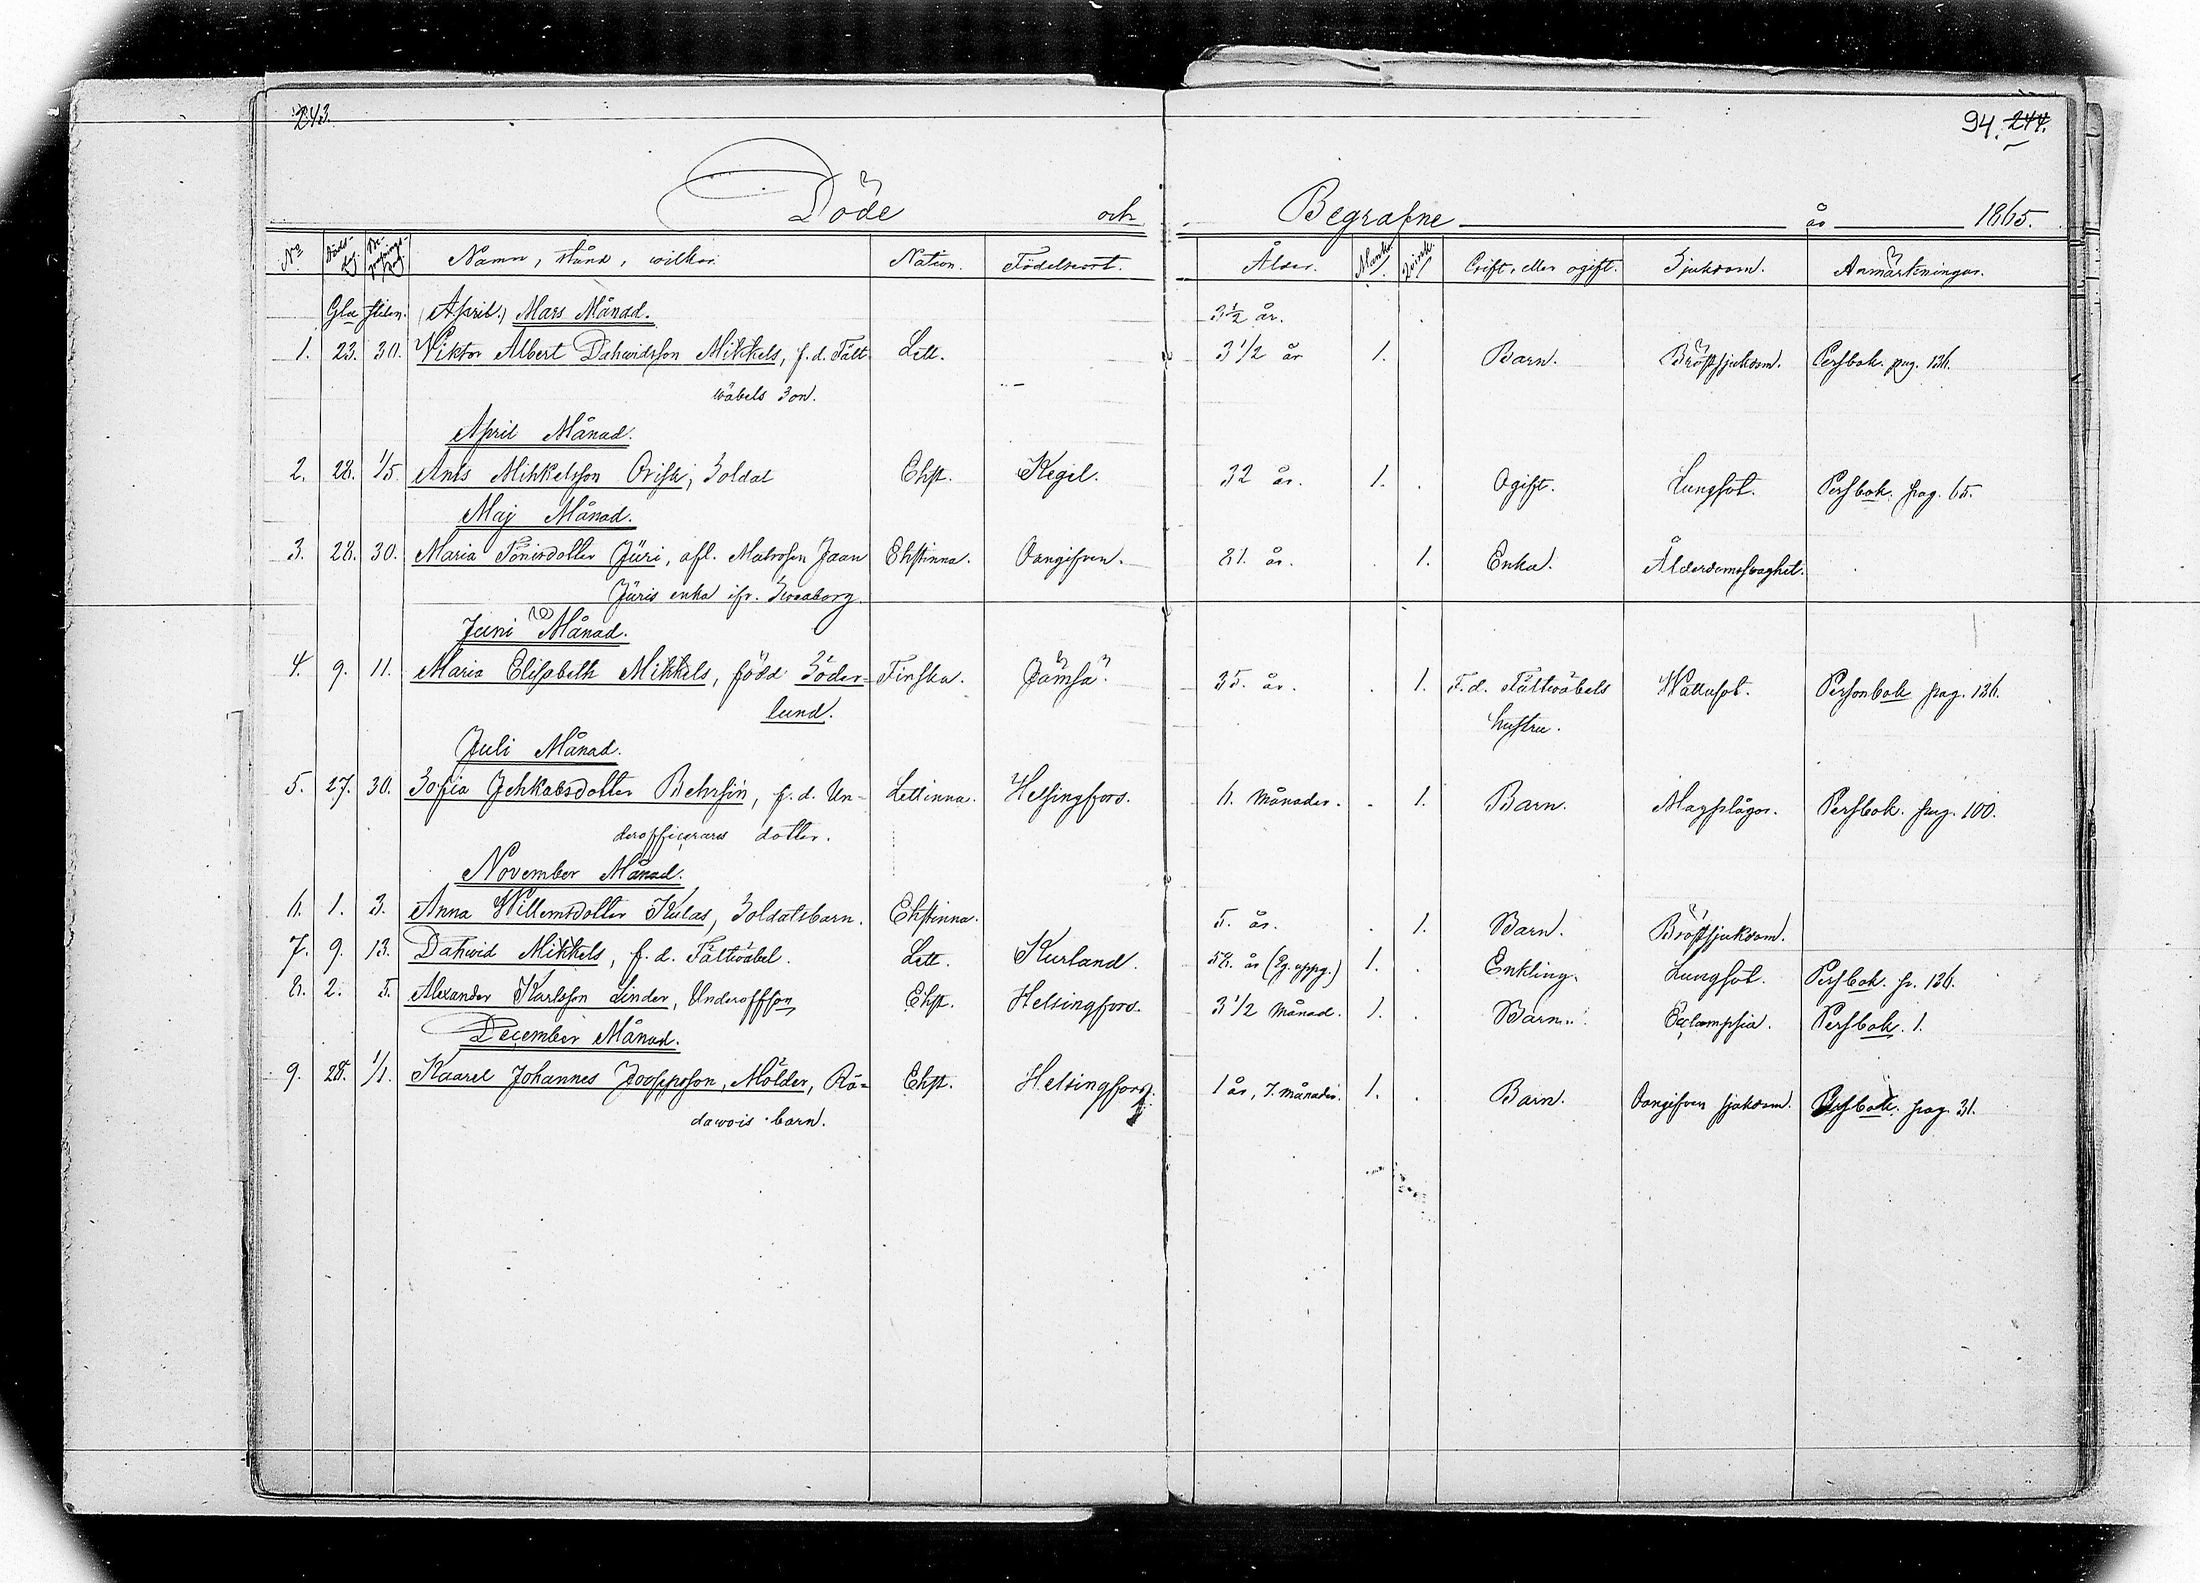 243.
94. 244.
Döde och Begrafne år 1865.
No Döds-dag. Be-grafnings-dag. Namn, stånd, wilkor. Nation. Födelseort. Ålder. Mank. Qvink. Gift, eller ogift. Sjukdom. Anmärkningar.
Gla stilen. (April.) Mars Månad. 3 1/2 år.
1. 23. 30. Wiktor Albert Dahwidsson Mikkels, f.d. Fält- Lett. 3 1/2 år 1. Barn. Bröstsjukdom. Persbok. pag. 136.
wäbels Son.
April Månad.
2. 28. 1/5. Ants Mihkelsson Orisk, Soldat Ehst. Kegel. 32 år. 1. Ogift. Lungsot. Persbok. pag. 65.
Maj Månad.
3. 28. 30. Maria Tönisdotter Jüri, afl. Matrosen Jaan Ehstinna. Oangifven. 81. år. 1. Enka. Ålderdomssvaghet.
Jüris enka ifr. Sweaborg.
Juni Månad.
4. 9. 11. Maria Elisabeth Mikkels, född Söder- Finska. Jämsä. 35. år. 1. F.d. Fältwäbels Wattusot. Personbok pag. 136.
lund. hustru.
Juli Månad.
5. 27. 30. Sofia Jehkabsdotter Behrsin, f.d. Un- Lettinna. Helsingfors. 6. Månader. 1. Barn. Magplågor. Persbok. pag. 100.
derofficerares dotter.
November Månad.
6. 1. 3. Anna Willemsdotter Kulas, Soldatsbarn. Ehstinna. 5. år. 1. Barn. Bröstsjukdom.
7. 9. 13. Dahwid Mikkels, f.d. Fältwäbel. Lett. Kurland. 58. år (Eg. uppg.) 1. Enkling. Lungsot. Persbok. p. 136.
8. 2. 5. Alexander Karlsson Linder, Underoffson Ehst. Helsingfors. 3 1/2 Månad. 1. Barn. Eclampsia. Persbok. 1.
December Månad.
9. 28. 1/1. Kaarel Johannes Joosepsson, Mölder, Rä- Ehst. Helsingfors. 1 år, 7. månader. 1. Barn. Oangifven sjukdom. Persbok. pag. 31.
dawois barn.